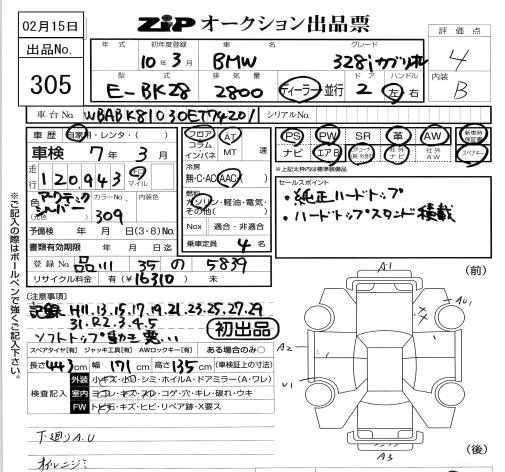 02月15日
ZIP オークション出品票
評価点
4
出品No.
305
年式 初年度登録 車名 グレード
10年3月 BMW 328i カブリオレ
内装
B
型式 排気量 ドア ハンドル
E-BK28 2800 ディーラー 並行 2 左 右
車台No. WBABK81030ET74201 シリアルNo.
車歴 自家用・レンタ・( )
車検 7年3月
走行 120,943 km マイル
色 アークティックシルバー カラーNo. 309 内装色
(元色 )
予備検 年 月 日(3・8)Mo.
書類有効期限 年 月 日迄
登録No. 品川 35 の 5839
リサイクル料金 有(¥16310) 未
フロア AT
コラム
インパネ MT 速
冷房
無・C・AC・AAC
燃料
ガソリン・軽油・電気・
その他( )
Nox 適合・非適合
乗車定員 4名
PS PW SR 革 AW 新車時保証書
ナビ エアB 社外ナビ 社外AW スペアキー
※上記〆枠内は標準装備品
セールスポイント
・純正ハードトップ
・ハードトップスタンド積載
※ご記入の際はボールペンで強くご記入下さい。
(注意事項)
記録 H11.13.15.17.19.21.23.25.27.29
31.R2.3.4.5
初出品
スペアタイヤ[有] ジャッキ工具[有] AWロッキー[有] ある場合のみ○
長さ443cm 幅171cm 高さ135cm (車検証上の寸法)
検査記入
外装 小キズ・小凹・シミ・ホイルA・ドアミラー(A・ワレ)
室内 ヨゴレ・キズ・スレ・コゲ・穴・キレ・破れ・ウキ
FW トビ石・キズ・ヒビ・リペア跡・X要ス
下廻りA.U
オイルニジミ
(前)
A1
AU1
A2
U1
A3
(後)